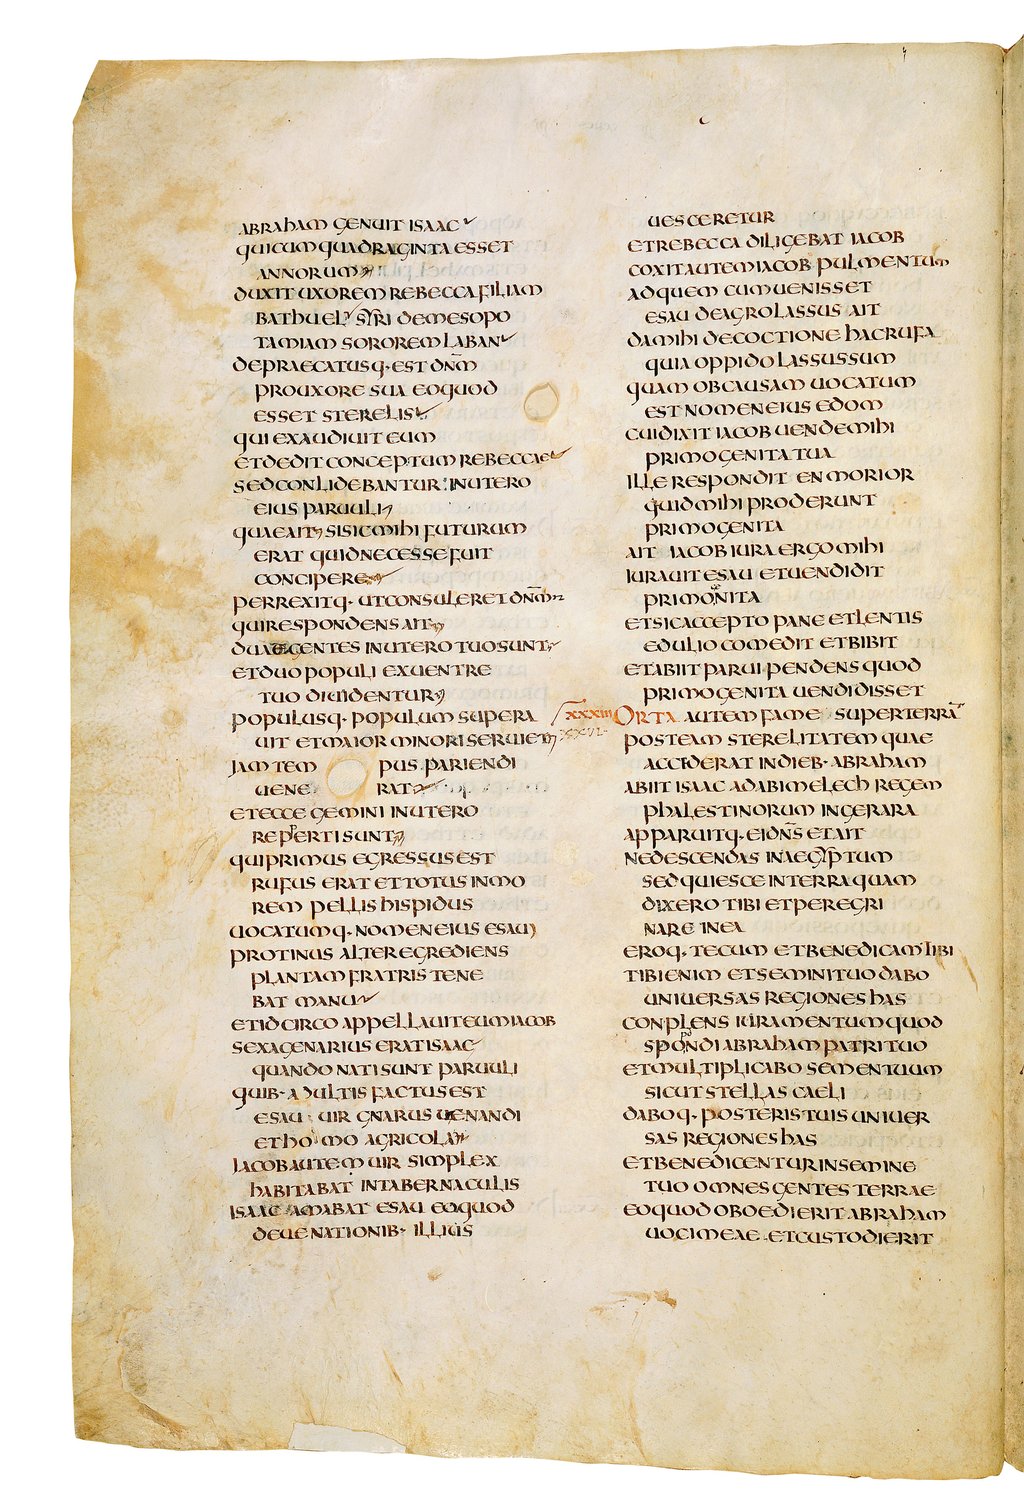 ABRAHAM GENUIT ISAAC
QUI CUM QUADRAGINTA ESSET
ANNORUM
DUXIT UXOREM REBECCA FILIAM
BATHUEL SYRI DE MESOPO
TAMIAM SOROREM LABAN
DEPRAECATUSQ· EST DN̄M
PRO UXORE SUA EO QUOD
ESSET STERELIS
QUI EXAUDIUIT EUM
ET DEDIT CONCEPTUM REBECCAE
SED CONLIDEBANTUR IN UTERO
EIUS PARUULI
QUAE AIT SI SIC MIHI FUTURUM
ERAT QUID NECESSE FUIT
CONCIPERE
PERREXITQ· UT CONSULERET DN̄M
QUI RESPONDENS AIT
DUAE GENTES IN UTERO TUO SUNT
ET DUO POPULI EX UENTRE
TUO DIUIDENTUR
POPULUSQ· POPULUM SUPERA
UIT ET MAIOR MINORI SERUIET
IAM TEMPUS PARIENDI
UENERAT
ET ECCE GEMINI IN UTERO
REPERTI SUNT
QUI PRIMUS EGRESSUS EST
RUFUS ERAT ET TOTUS IN MO
REM PELLIS HISPIDUS
UOCATUMQ· NOMEN EIUS ESAU
PROTINUS ALTER EGREDIENS
PLANTAM FRATRIS TENE
BAT MANU
ET IDCIRCO APPELLAUIT EUM IACOB
SEXAGENARIUS ERAT ISAAC
QUANDO NATI SUNT PARUULI
QUIB· ADULTIS FACTUS EST
ESAU UIR GNARUS UENANDI
ET HOMO AGRICOLA
IACOB AUTEM UIR SIMPLEX
HABITABAT IN TABERNACULIS
ISAAC AMABAT ESAU EO QUOD
DE UENATIONIB· ILLIUS
UESCERETUR
ET REBECCA DILIGEBAT IACOB
COXIT AUTEM IACOB PULMENTUM
AD QUEM CUM UENISSET
ESAU DE AGRO LASSUS AIT
DA MIHI DE COCTIONE HAC RUFA
QUIA OPPIDO LASSUS SUM
QUAM OB CAUSAM UOCATUM
EST NOMEN EIUS EDOM
CUI DIXIT IACOB UENDE MIHI
PRIMOGENITA TUA
ILLE RESPONDIT EN MORIOR
QUID MIHI PRODERUNT
PRIMOGENITA
AIT IACOB IURA ERGO MIHI
IURAUIT ESAU ET UENDIDIT
PRIMOGENITA
ET SIC ACCEPTO PANE ET LENTIS
EDULIO COMEDIT ET BIBIT
ET ABIIT PARUI PENDENS QUOD
PRIMOGENITA UENDIDISSET
XXXIII ORTA AUTEM FAME SUPER TERRĀ
XXVI POST EAM STERELITATEM QUAE
ACCIDERAT IN DIEB· ABRAHAM
ABIIT ISAAC AD ABIMELECH REGEM
PHALESTINORUM IN GERARA
APPARUITQ· EI DN̄S ET AIT
NE DESCENDAS IN AEGYPTUM
SED QUIESCE IN TERRA QUAM
DIXERO TIBI ET PEREGRI
NARE IN EA
EROQ· TECUM ET BENEDICAM TIBI
TIBI ENIM ET SEMINI TUO DABO
UNIUERSAS REGIONES HAS
CONPLENS IURAMENTUM QUOD
SPOPONDI ABRAHAM PATRI TUO
ET MULTIPLICABO SEMEN TUUM
SICUT STELLAS CAELI
DABOQ· POSTERIS TUIS UNIUER
SAS REGIONES HAS
ET BENEDICENTUR IN SEMINE
TUO OMNES GENTES TERRAE
EO QUOD OBOEDIERIT ABRAHAM
UOCI MEAE ET CUSTODIERIT